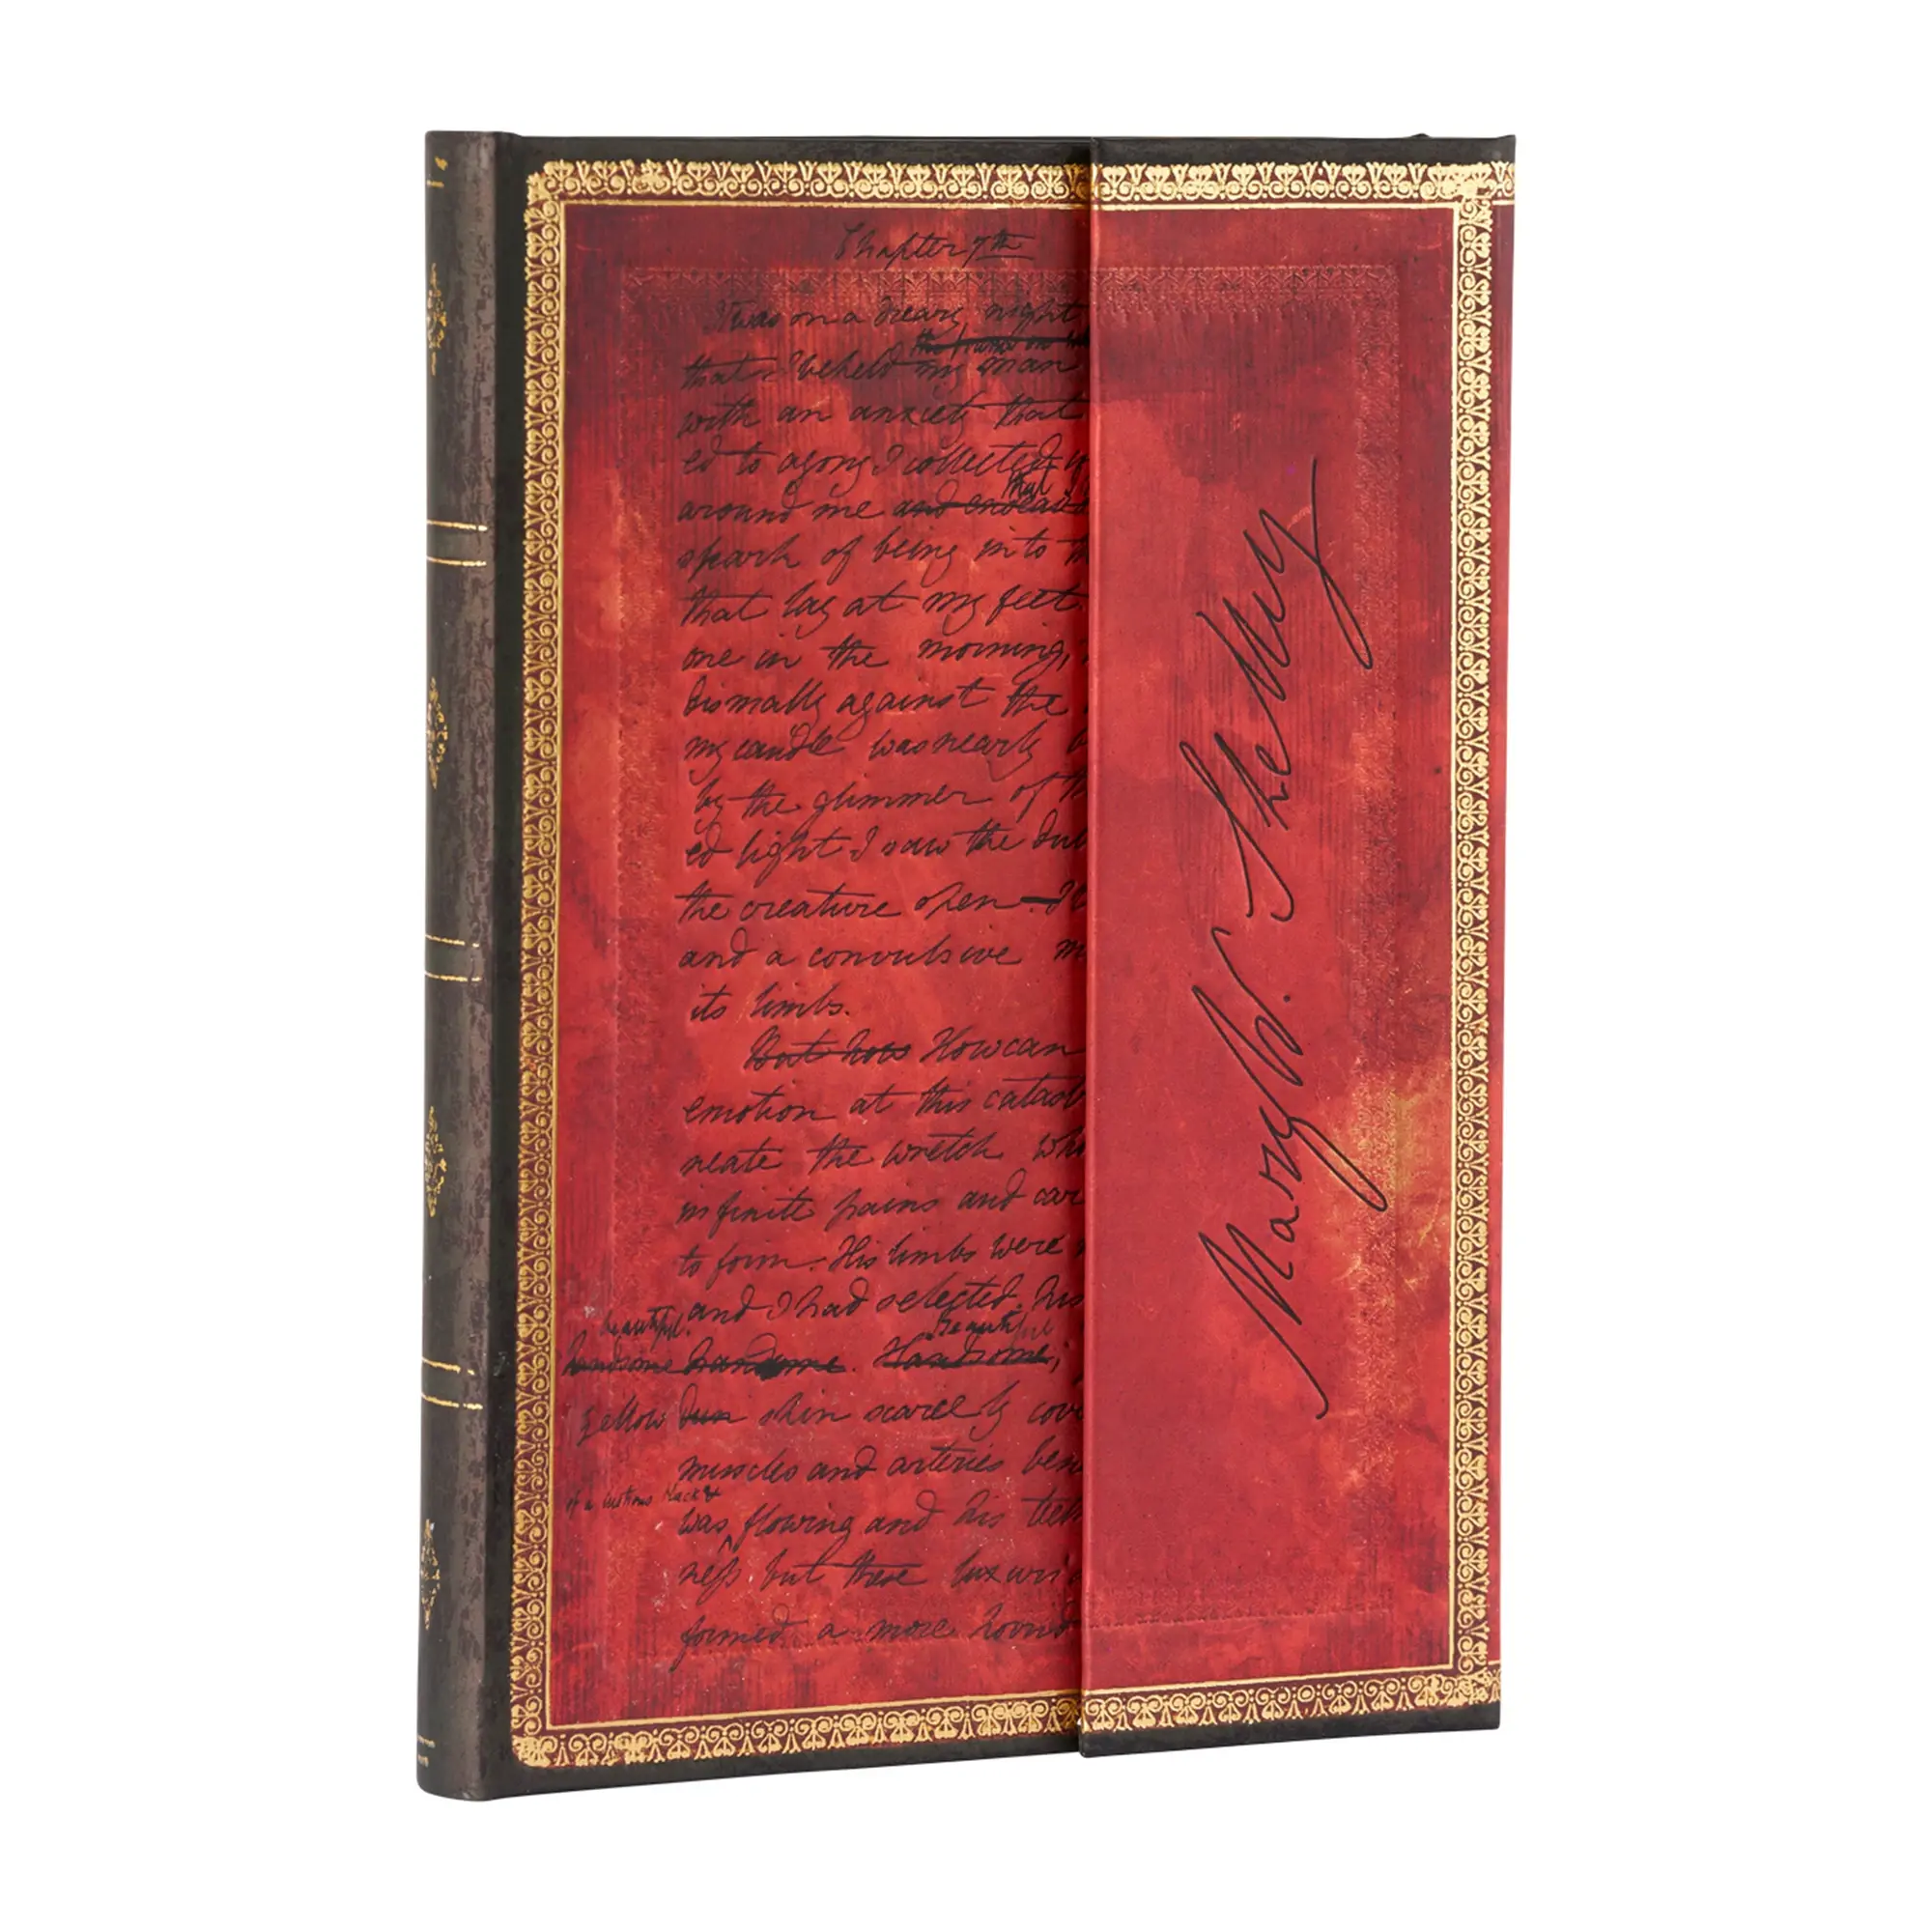 Chapter 7th
It was on a dreary night
the frame on
that I beheld my man
with an anxiety that
ed to agony I collected
that
around me and endeavo
spark of being into th
that lay at my feet
one in the morning,
dismally against the
my candle was nearly b
by the glimmer of th
ed light I saw the dul
the creature open - I
and a convulsive m
its limbs.
But how How can
emotion at this catast
neate the wretch who
infinite pains and car
to form. His limbs were
and I had selected his
beautiful. Beautiful
handsome handsome. Handsome;
Yellow dun skin scarcely cov
muscles and arteries bene
of a lustrous black &
was flowing and his teeth
ness but these luxuri
formed a more horrid
Mary W. Shelley